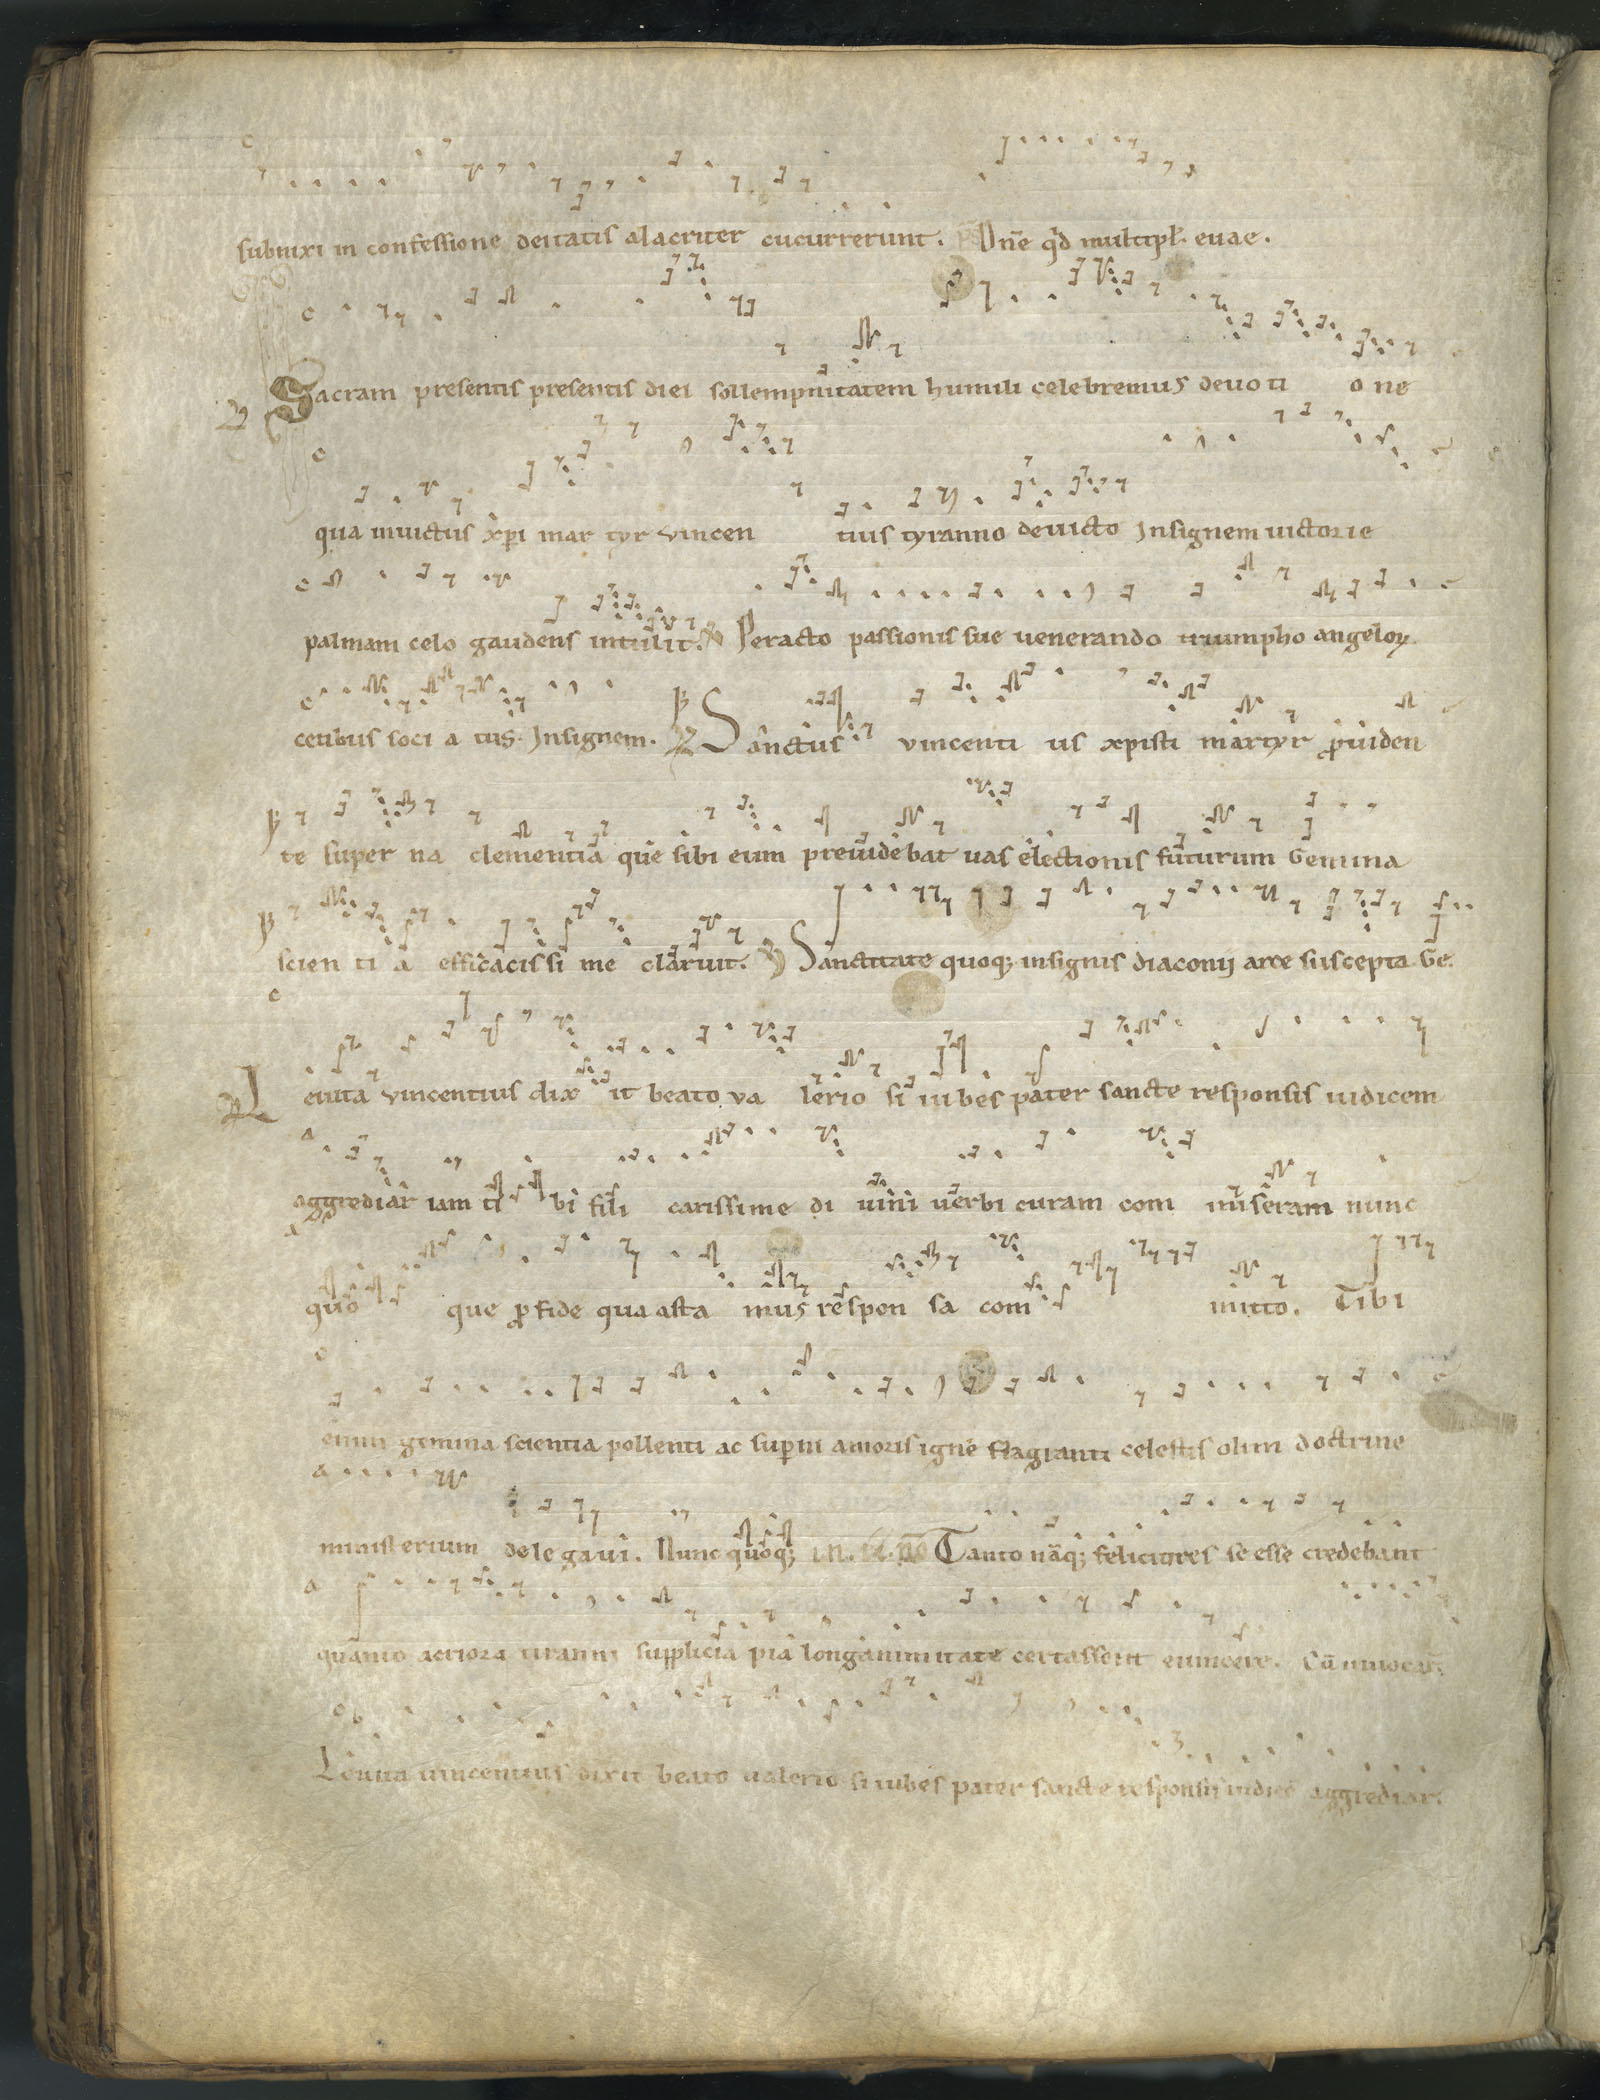 subnixi in confessione deitatis alacriter cucurrerunt. Dn̄e qd̄ multipl. evae.
Sacram presentis presentis diei sollempnitatem humili celebremus devoti o ne
qua invictus xp̄i mar tyr vincen tius tyranno devicto Insignem victorie
palmam celo gaudens intulit. Peracto passionis sue venerando triumpho angeloꝝ
cetibus soci a tus. Insignem. Sanctus vincenti us xpisti martyr ꝓviden
te super na clementia que sibi eum previdebat vas electionis futurum Gemina
scien ti a efficacissi me claruit. Sanctitate quoq; insignis diaconij arce suscepta Ge.
Levita vincentius dix it beato va lerio si iubes pater sancte responsis iudicem
aggrediar iam ti bi fili carissime di vini verbi curam com miseram nunc
quo que ꝓ fide qua asta mus respon sa com mitto. Tibi
enim gemina scientia pollenti ac suꝑni amoris igne flagranti celestis olim doctrine
ministerium delegavi. Nunc quoq; Tanto naq; feliciores se esse credebant
quanto acriora tiranni supplicia pia longanimitate certassent evincere. Cū invocarē
Levita vincentius dixit beato valerio si iubes pater sancte responsis iudicē aggrediar.